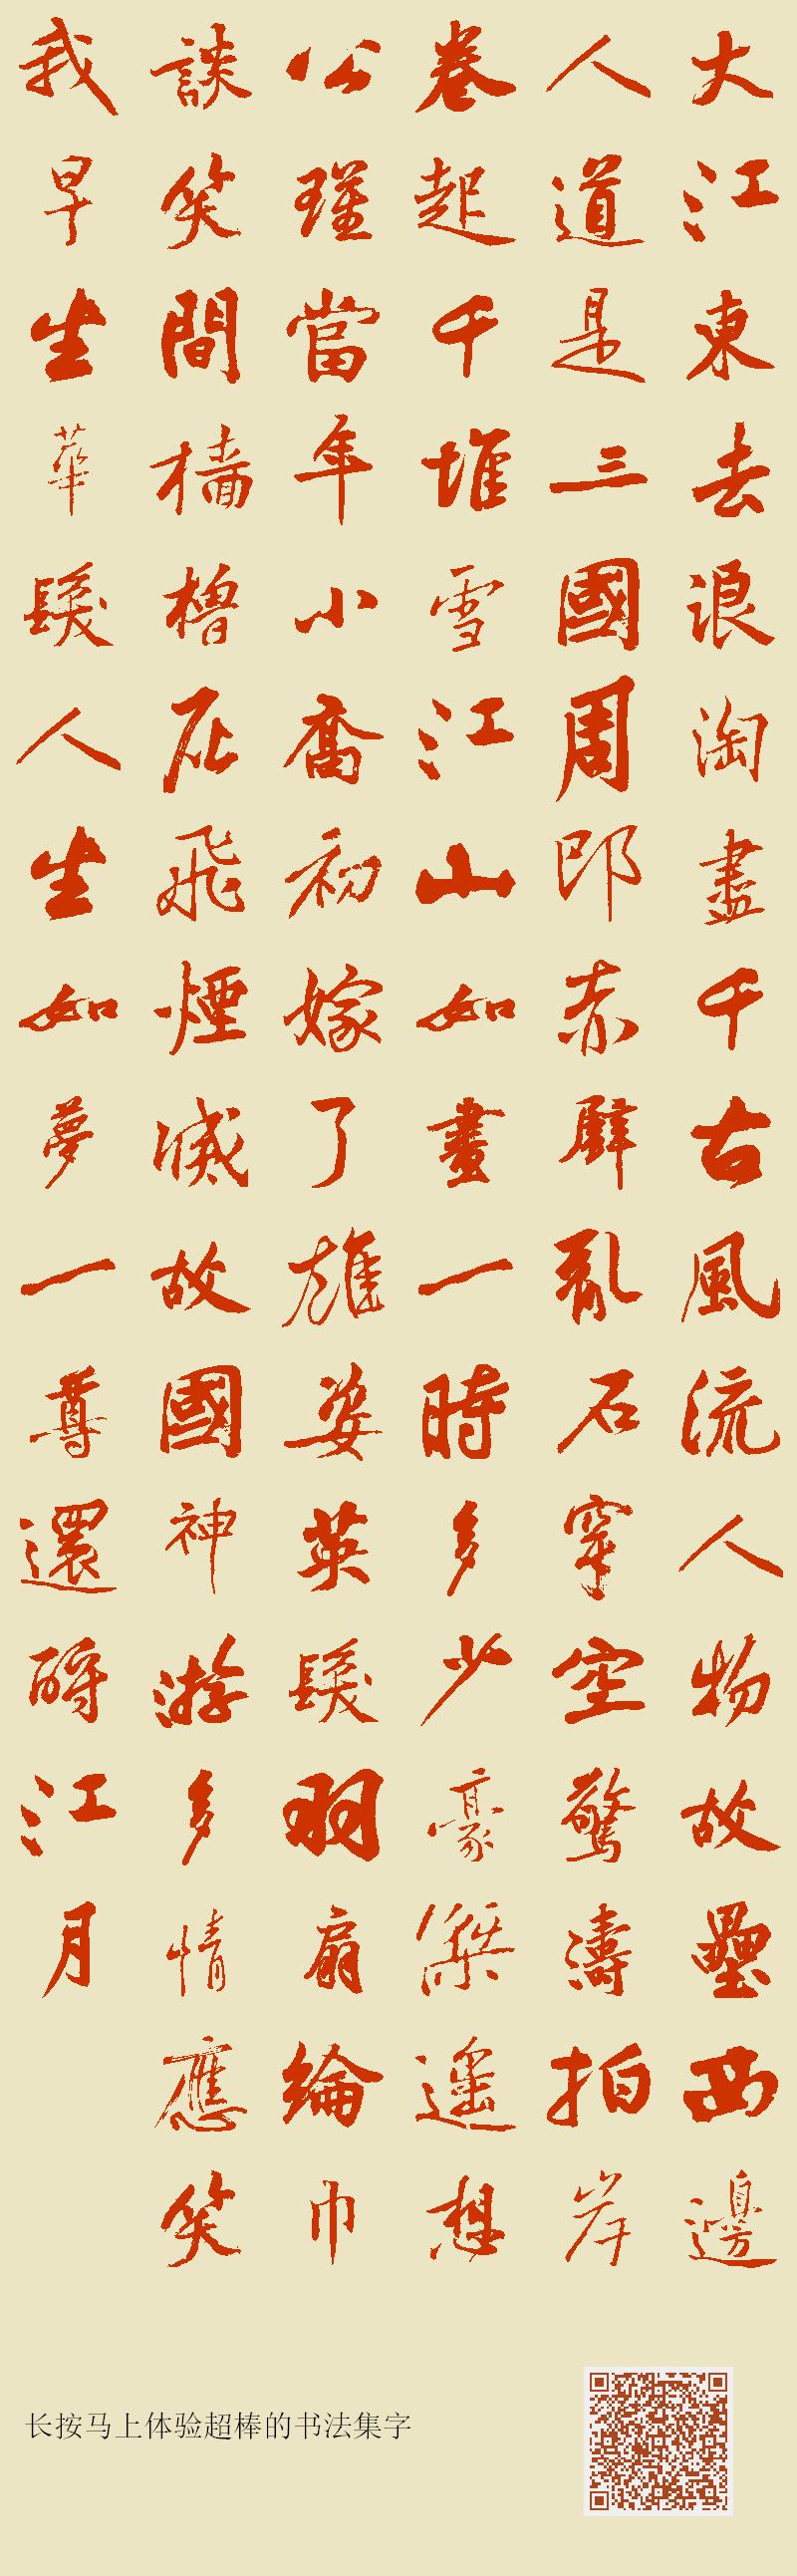 大江東去浪淘盡千古風流人物故壘西邊
人道是三國周郎赤壁亂石穿空驚濤拍岸
卷起千堆雪江山如畫一時多少豪傑遙想
公瑾當年小喬初嫁了雄姿英髮羽扇綸巾
談笑間檣櫓灰飛煙滅故國神游多情應笑
我早生華髮人生如夢一尊還酹江月
长按马上体验超棒的书法集字